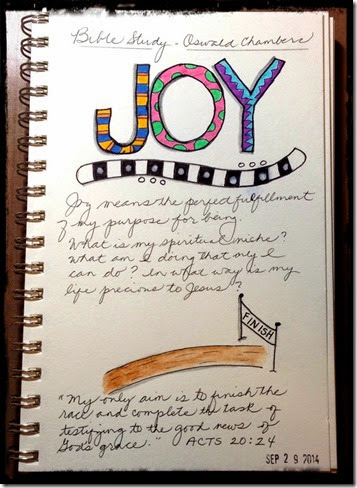 Bible Study - Oswald Chambers
JOY
Joy means the perfect fulfillment
of my purpose for being.
What is my spiritual niche?
What am I doing that only I
can do? In what way is my
life precious to Jesus?
FINISH
"My only aim is to finish the
race and complete the task of
testifying to the good news of
God's grace." ACTS 20:24
SEP 29 2014